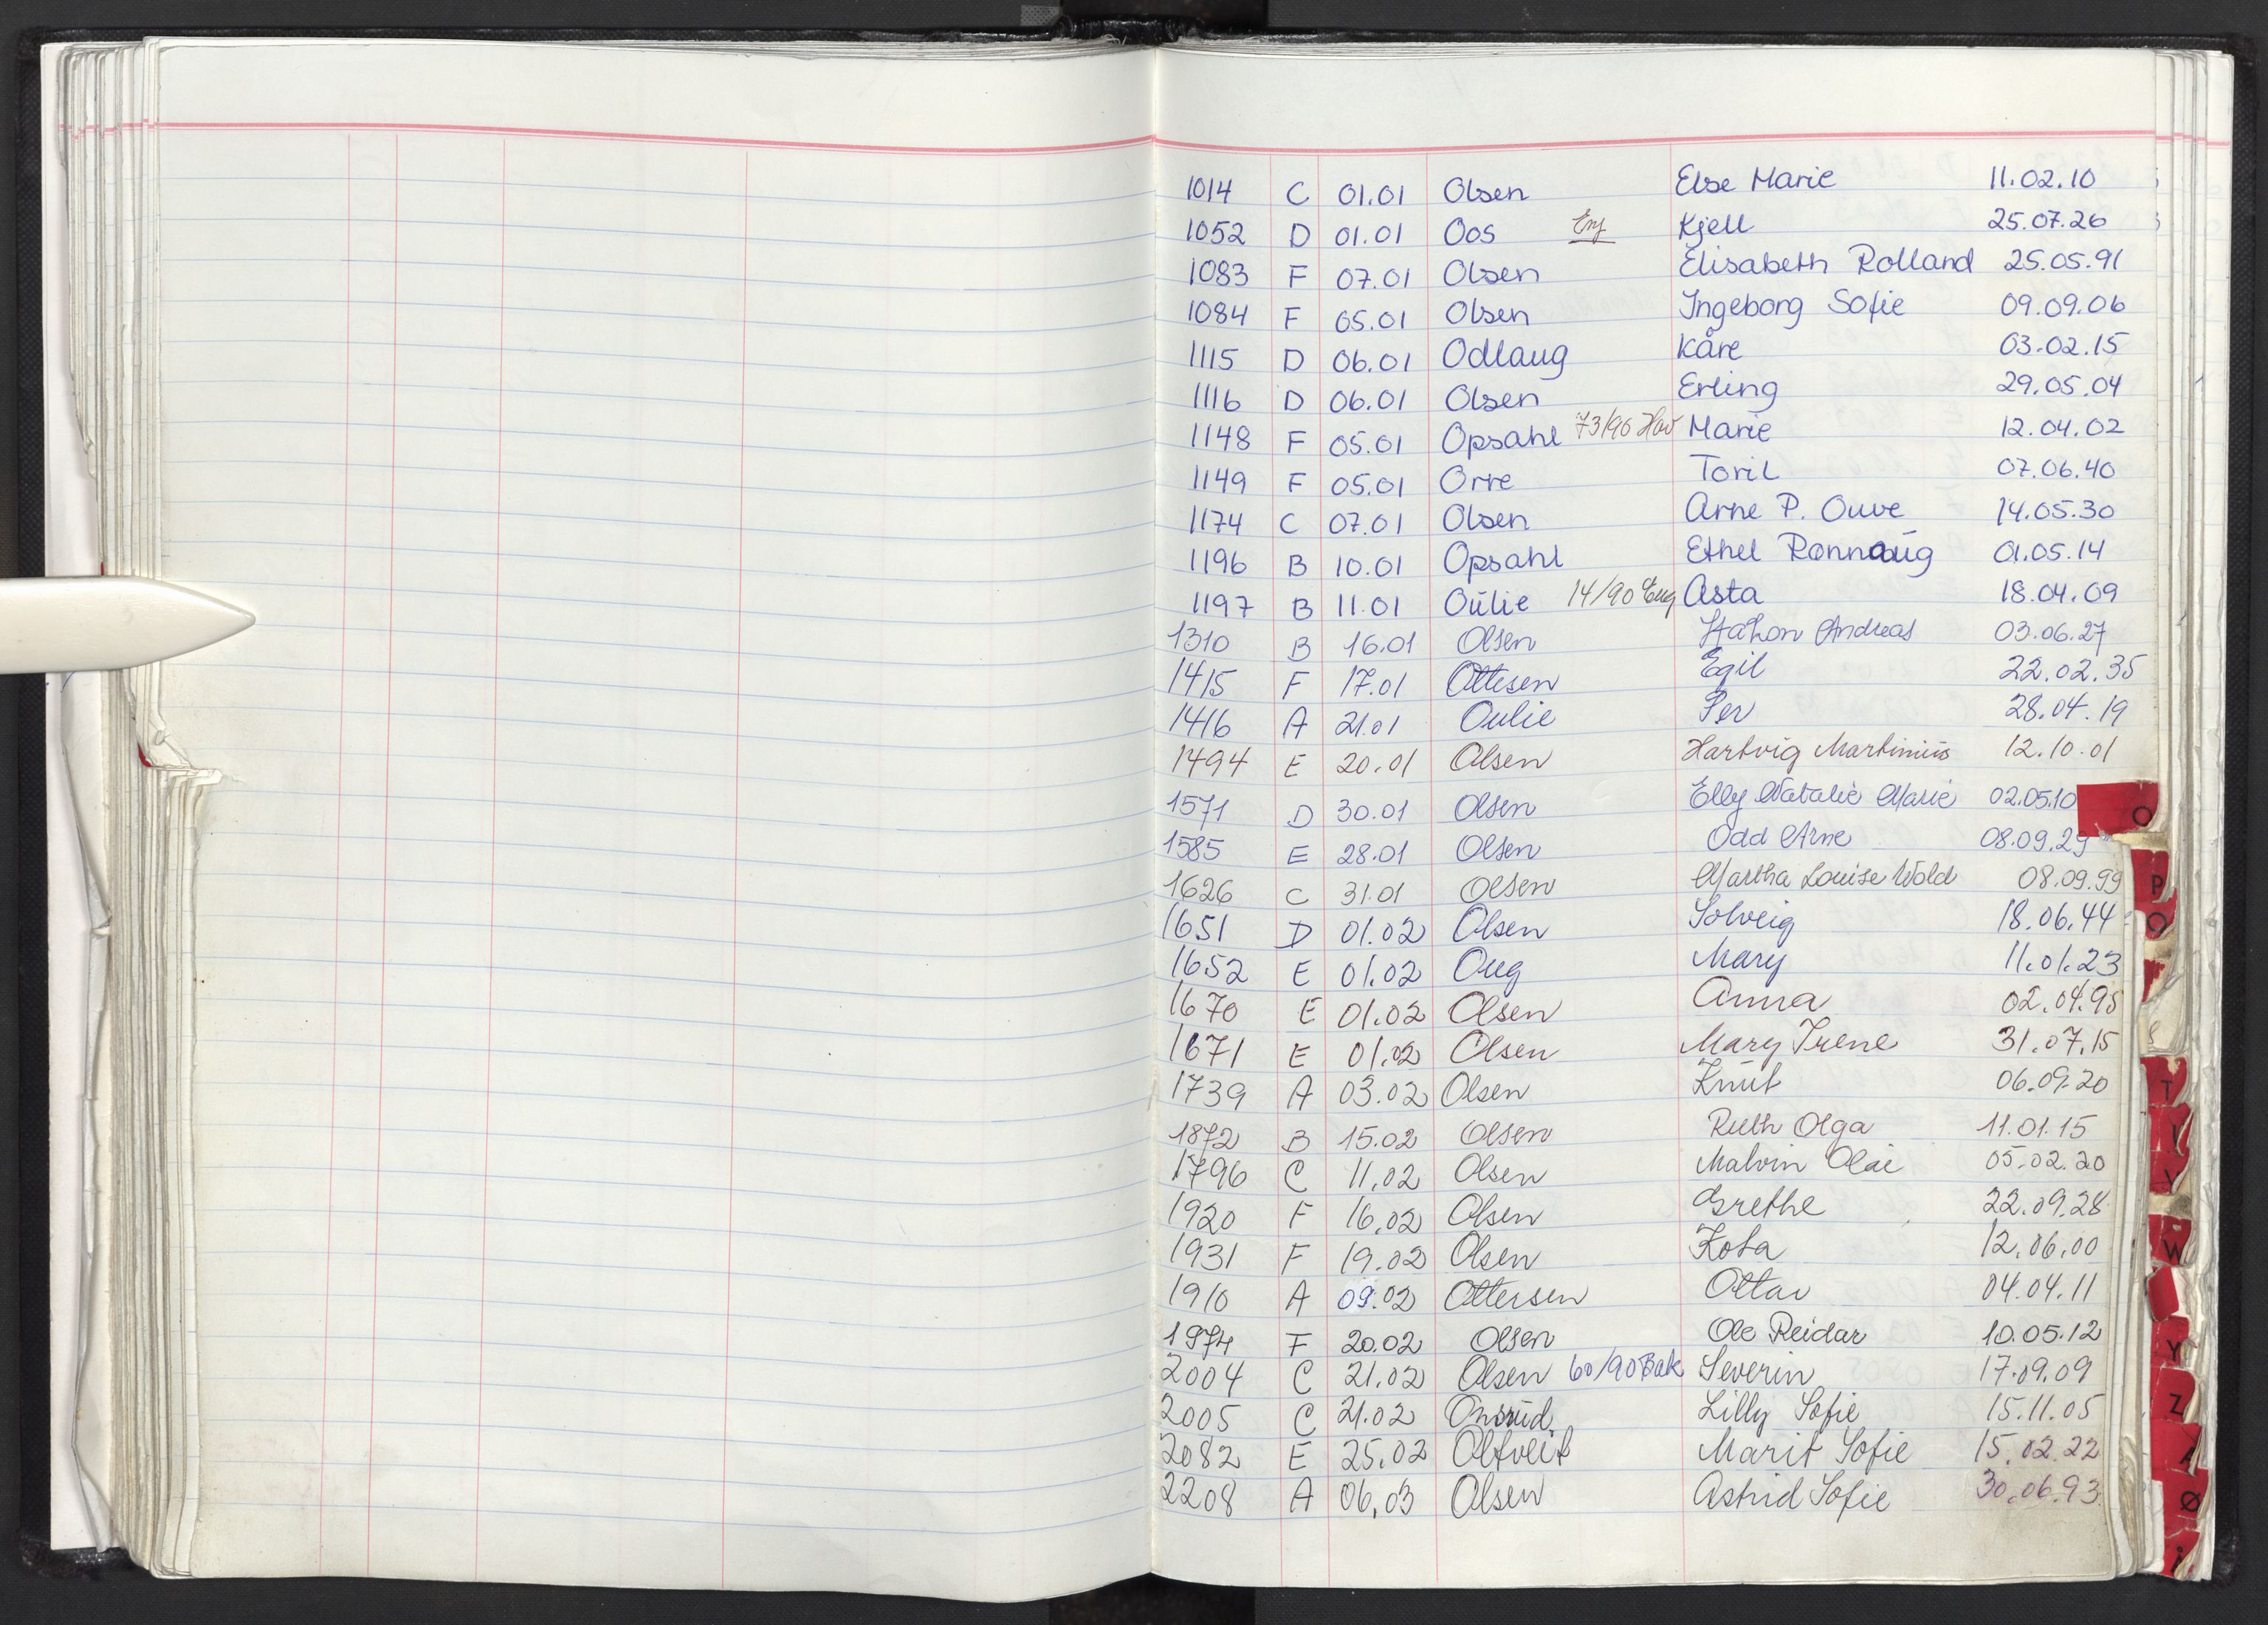 1014 C 01.01 Olsen Else Marie 11.02.10
1052 D 01.01 Oos Kjell 25.07.26
1083 F 07.01 Olsen Elisabeth Rolland 25.05.91
1084 F 05.01 Olsen Ingeborg Sofie 09.09.06
1115 D 06.01 Odlaug Kåre 03.02.15
1116 D 06.01 Olsen Erling 29.05.04
1148 F 05.01 Opsahl 73/90 Hov Marie 12.04.02
1149 F 05.01 Orre Toril 07.06.40
1174 C 07.01 Olsen Arne P. Ouve 14.05.30
1196 B 10.01 Opsahl Ethel Rønnaug 01.05.14
1197 B 11.01 Oulie 14/90 Eug Asta 18.04.09
1310 B 16.01 Olsen Håkon Andreas 03.06.27
1415 F 17.01 Ottesen Egil 22.02.35
1416 A 21.01 Oulie Per 28.04.19
1494 E 20.01 Olsen Hartvig Martinius 12.10.01
1571 D 30.01 Olsen Elly Natalie Marie 02.05.10
1585 E 28.01 Olsen Odd Arne 08.09.29
1626 C 31.01 Olsen Martha Louise Wold 08.09.99
1651 D 01.02 Olsen Solveig 18.06.44
1652 E 01.02 Oug Mary 11.01.23
1670 E 01.02 Olsen Anna 02.04.95
1671 E 01.02 Olsen Mary Irene 31.07.15
1739 A 03.02 Olsen Knut 06.09.20
1872 B 15.02 Olsen Ruth Olga 11.01.15
1796 C 11.02 Olsen Malvin Olai 05.02.20
1920 F 16.02 Olsen Grethe 22.09.28
1931 F 19.02 Olsen Kota 12.06.00
1910 A 09.02 Ottersen Ottar 04.04.11
1974 F 20.02 Olsen Ole Reidar 10.05.12
2004 C 21.02 Olsen 60/90 Bak Severin 17.09.09
2005 C 21.02 Onsrud Lilly Sofie 15.11.05
2082 E 25.02 Oltveit Marit Sofie 15.02.22
2208 A 06.03 Olsen Astrid Sofie 30.06.93
O
P
Q
T
V
W
Y
Z
Ø